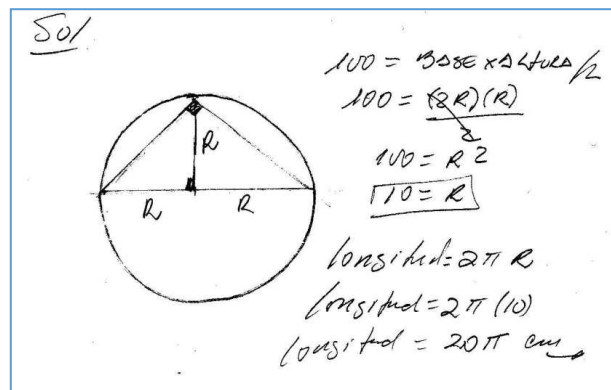 Sol
100 = BASE x ALTURA/2
100 = (2R)(R)
2
100 = R²
10 = R
R
R R
longitud = 2π R
longitud = 2π (10)
longitud = 20π cm